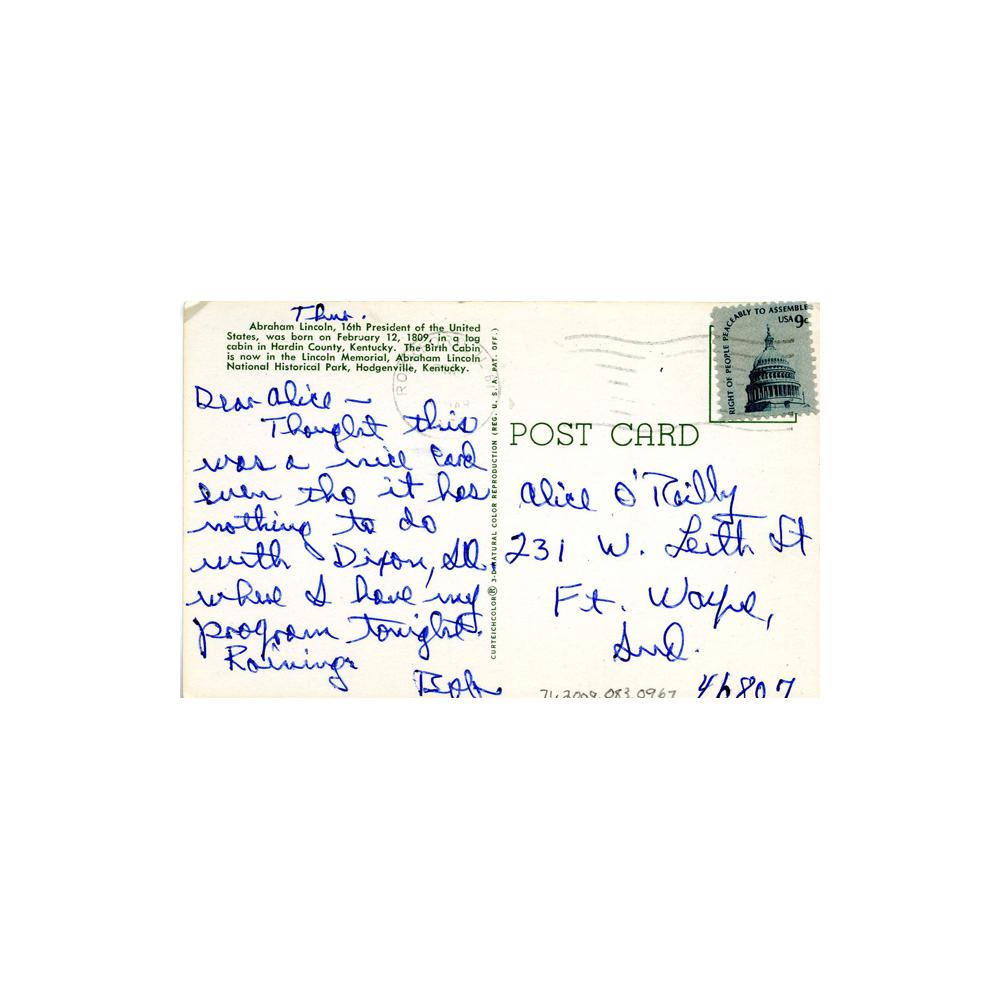 Thur.
Abraham Lincoln, 16th President of the United
States, was born on February 12, 1809, in a log
cabin in Hardin County, Kentucky. The Birth Cabin
is now in the Lincoln Memorial, Abraham Lincoln
National Historical Park, Hodgenville, Kentucky.
Dear Alice —
Thought this
was a nice card
even tho it has
nothing to do
with Dixon, Ill.
where I have my
program tonight.
Raining.
Bob
CURTEICHCOLOR® 3-D NATURAL COLOR REPRODUCTION (REG. U. S. A. PAT. OFF.)
RIGHT OF PEOPLE PEACEABLY TO ASSEMBLE
USA 9c
POST CARD
Alice O'Reilly
231 W. Leith St
Ft. Wayne,
Ind.
46807
71.2009.083.0967